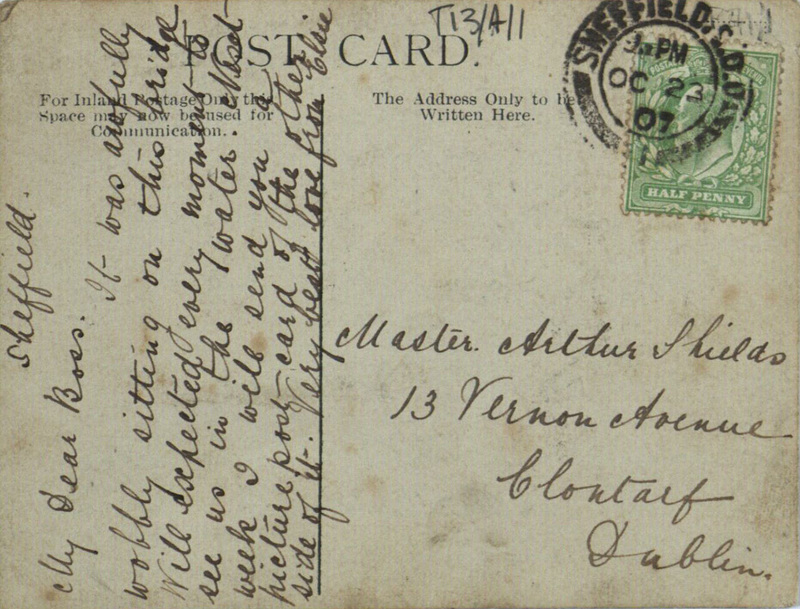 T13/A/1
POST CARD.
For Inland Postage Only this
Space may now be used for
Communication.
The Address Only to be
Written Here.
SHEFFIELD. S.O.
PM
OC 23
07
HALF PENNY
Sheffield.
My Dear Boss. It was awfully
wobbly sitting on this bridge
Will expected every moment to
see us in the water. Next
week I will send you a
picture post-card of the other
side of it. Very best love from Elsie
Master. Arthur Shields
13 Vernon Avenue
Clontarf
Dublin.